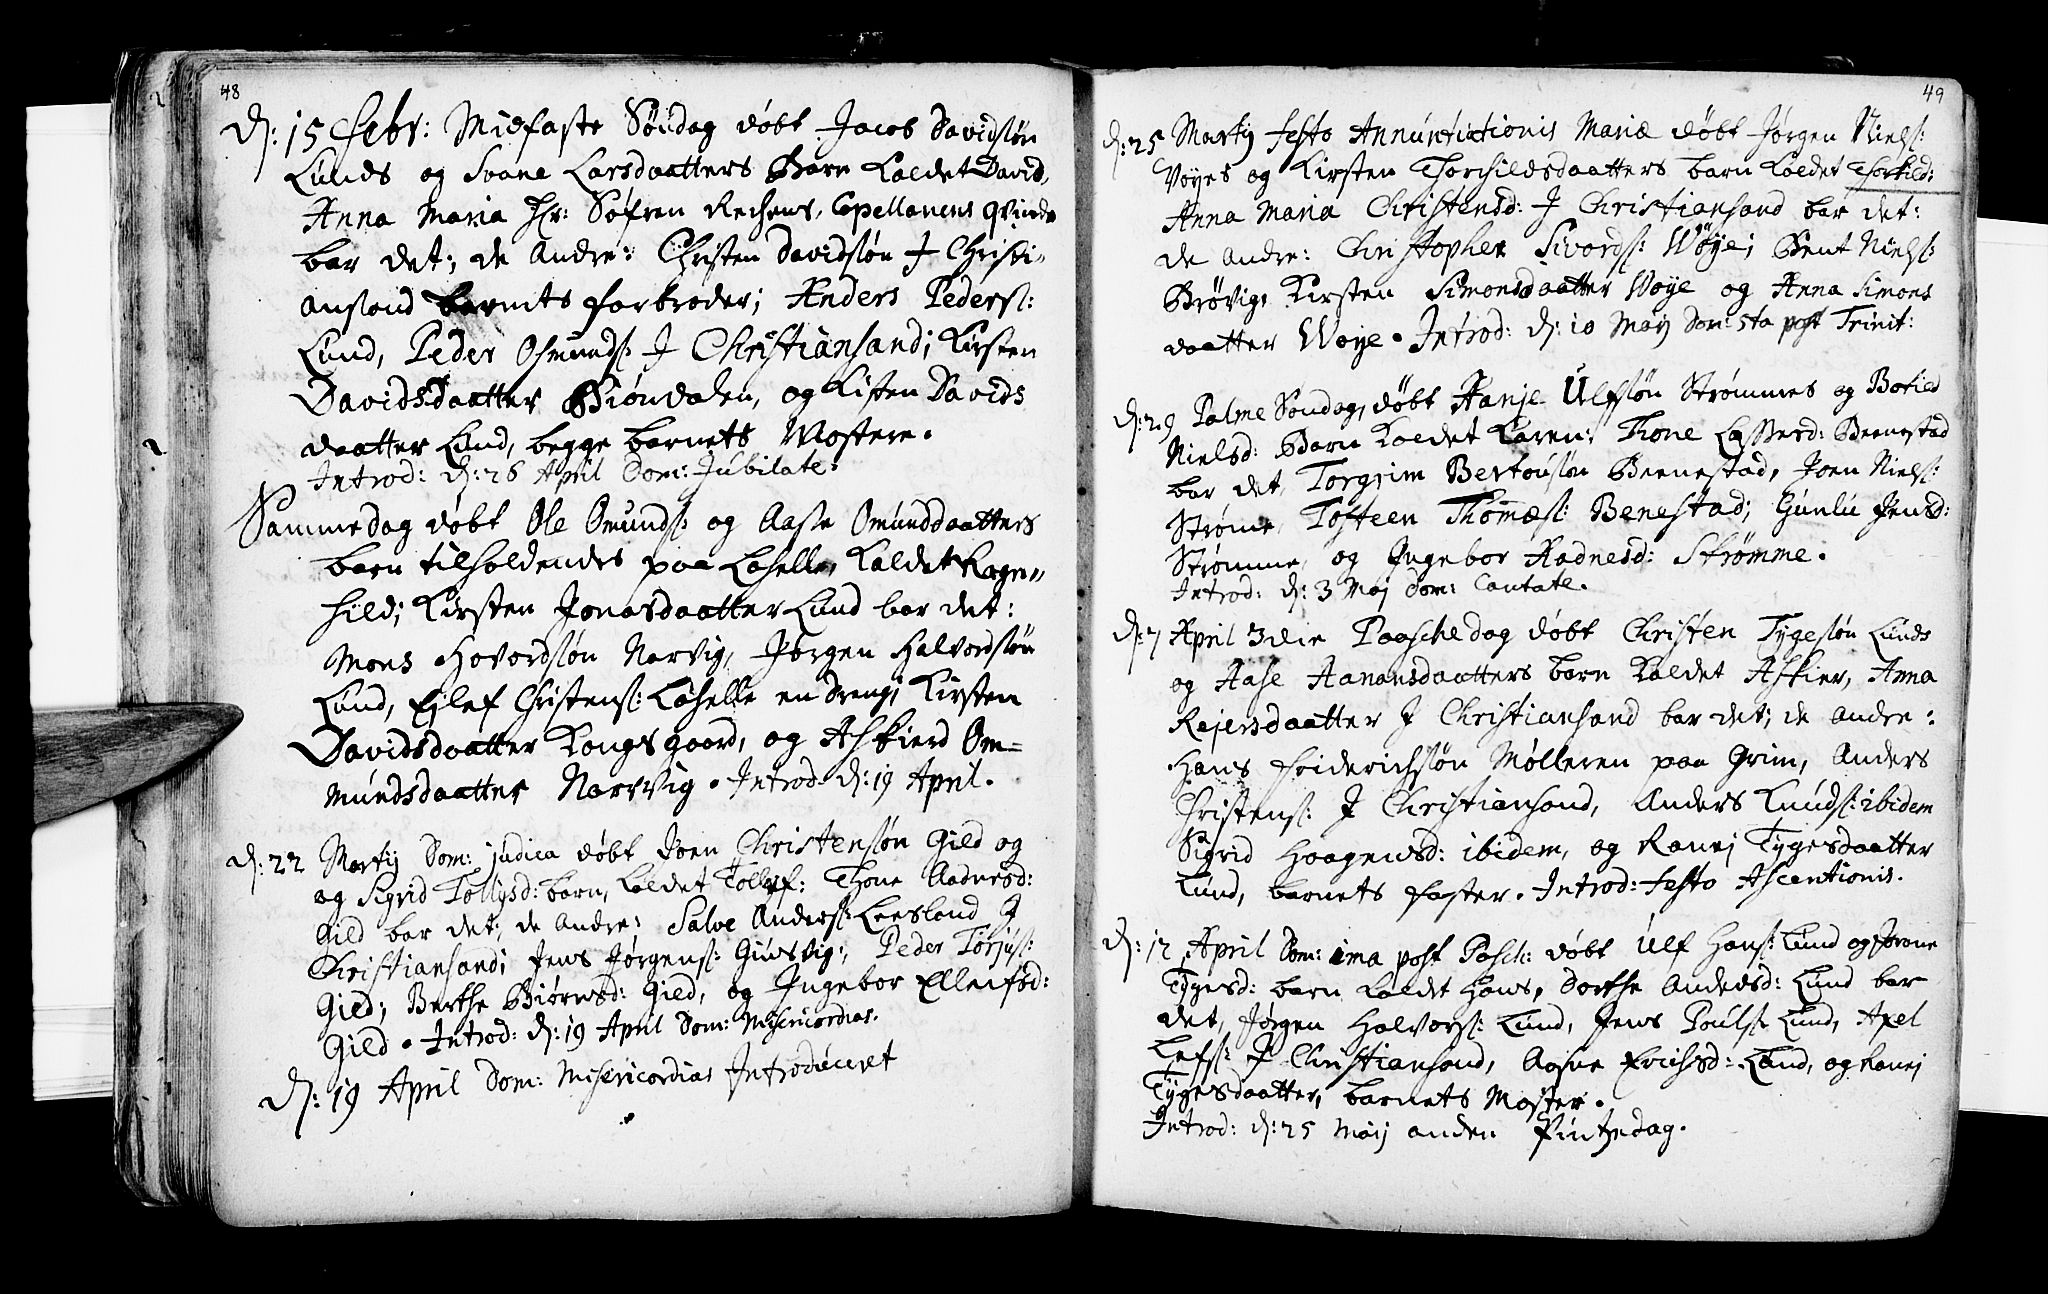 48
D: 15 Febr: Midfaste Søndag døbt Jacob Davidsløn
Lunds og Svane Larsdaatters Barn Kaldet David,
Anna Maria Hr: Søfren Rechens, Capellanens qvinde
bar det; de Andre: Christen Davidsløn J Christi-
ansand barnets farbroder; Anders Peders:
Lund, Peder Osmunds: J Christiansand; Kirsten
Davidsdaatter Biøndalen, og Kisten Davids
daatter Lund, begge barnets Mostere.
Introd: d: 26 April Dom: Jubilate:
Samme dag døbt Ole Omunds: og Aase Omunddaatters
barn tilholdendes paa Lahelle, Kaldet Ragn-
hild; Kirsten Jonasdaatter Lund bar det:
Mons Hovordsløn Narvig, Jørgen Halvordsløn
Lund, Ejlef Christens: Lahelle en dreng; Kirsten
Davidsdaatter Kongsgaard, og Askierd Om-
mundsdaatter Narvig. Introd d: 19 April.
d: 22 Martij Dom: judica døbt Joen Christensløn Gild og
og Sigrid Tollijsd: barn, Kaldet Tollef: Thone Aadnesd:
Gild bar det; de Andre: Salve Anders: Leesland J
Christiansand; Jens Jørgens: Ginsvig; Peder Torjus:
Gild; Berthe Biørnsd: Gild, og Ingebor Elleifsd:
Gild. Introd: d: 19 April Dom: Misericordias.
D: 19 April Dom: Misericordias Introduceret
49
d: 25 Martij Festo Annuntiationis Mariæ døbt Jørgen Niels:
Vøyes og Kirsten Thorchildsdaatters barn Kaldet Thorkild:
Anna Maria Christensd: J Christiansand bar det:
de Andre: Christopher Sivords: Wøye; Bent Niels:
Brøvig, Kirsten Simonsdaatter Wøye og Anna Simons
daatter Wøye. Introd: d: 10 Maij Dom: 5ta post Trinit:
d: 29 Palme Søndag, døbt Hanje Ulfsløn Strømmes og Botild
Nielsd: Barn Kaldet Karen: Thone Lassesd: Beenestad
bar det, Torgrim Bertousløn Beenestad, Joen Niels:
Strøme, Tosteen Thomæs: Benestad; Gunlu Jensd:
Strømme, og Ingebor Hadnesd: Strømme.
Introd: d: 3 Maj Dom: Cantate.
d: 7 April 3die Paaschedag døbt Christen Tygesløn Lunds
og Aase Aanansdaatters barn Kaldet Askier, Anna
Rejersdaatter J Christiansand bar det; de andre:
Hans Friderichsløn Mølleren paa Grim, Anders
Christens: J Christiansand, Anders Knuds: ibidem
Sigrid Haagensd: ibidem, og Ranej Tygesdaatter
Lund, barnets faster. Introd: Festo Ascentionis.
d: 12 April Dom: 1ma post Pasch: døbt Ulf Hans: Lund og Jorone
Tygesd: barn Kaldet Hans, Dorthe Andedsd: Lund bar
det, Jørgen Halvors: Lund, Jens Pouls: Lund, Axel
Lefs: J Christiansand, Aasne Erichsd: Lund, og Ranej
Tygesdaatter, barnets Moster.
Introd: d: 25 Maij anden Pintzedag.